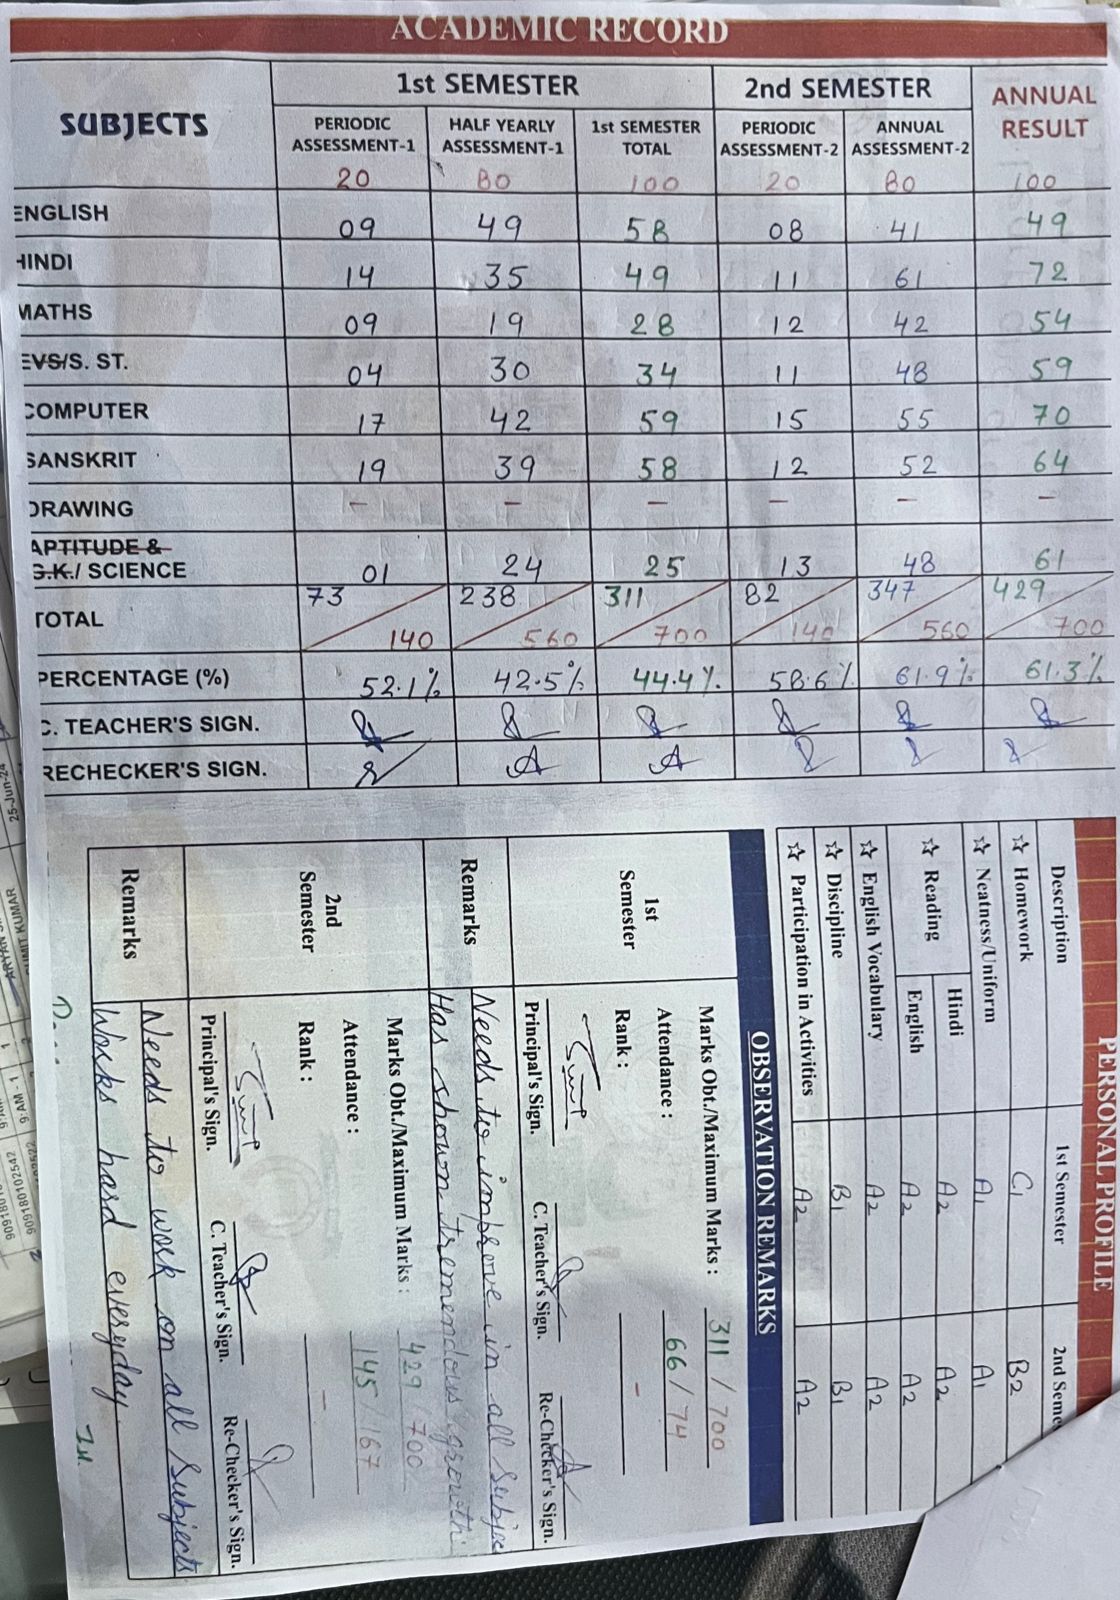 ACADEMIC RECORD
SUBJECTS 1st SEMESTER 2nd SEMESTER ANNUAL RESULT
PERIODIC ASSESSMENT-1 HALF YEARLY ASSESSMENT-1 1st SEMESTER TOTAL PERIODIC ASSESSMENT-2 ANNUAL ASSESSMENT-2
20 80 100 20 80 100
ENGLISH 09 49 58 08 41 49
HINDI 14 35 49 11 61 72
MATHS 09 19 28 12 42 54
EVS/S. ST. 04 30 34 11 48 59
COMPUTER 17 42 59 15 55 70
SANSKRIT 19 39 58 12 52 64
DRAWING - - - - - -
APTITUDE &
G.K./ SCIENCE 01 24 25 13 48 61
TOTAL 73/140 238/560 311/700 82/140 347/560 429/700
PERCENTAGE (%) 52.1% 42.5% 44.4% 58.6% 61.9% 61.3%
C. TEACHER'S SIGN.
RECHECKER'S SIGN.
PERSONAL PROFILE
Description 1st Semester 2nd Seme
☆ Homework C1 B2
☆ Neatness/Uniform A1 A1
☆ Reading Hindi A2 A2
English A2 A2
☆ English Vocabulary A2 A2
☆ Discipline B1 B1
☆ Participation in Activities A2 A2
OBSERVATION REMARKS
1st Semester
Marks Obt./Maximum Marks : 311 / 700
Attendance : 66 / 74
Rank : -
Principal's Sign. C. Teacher's Sign. Re-Checker's Sign.
Remarks Needs to improve in all subjec
Has shown tremendous growth
2nd Semester
Marks Obt./Maximum Marks : 429 / 700
Attendance : 145 / 167
Rank : -
Principal's Sign. C. Teacher's Sign. Re-Checker's Sign.
Remarks Needs to work on all subjects
Works hard everyday.
25-Jun-24
UMIT KUMAR
9:AM -1
909180102542